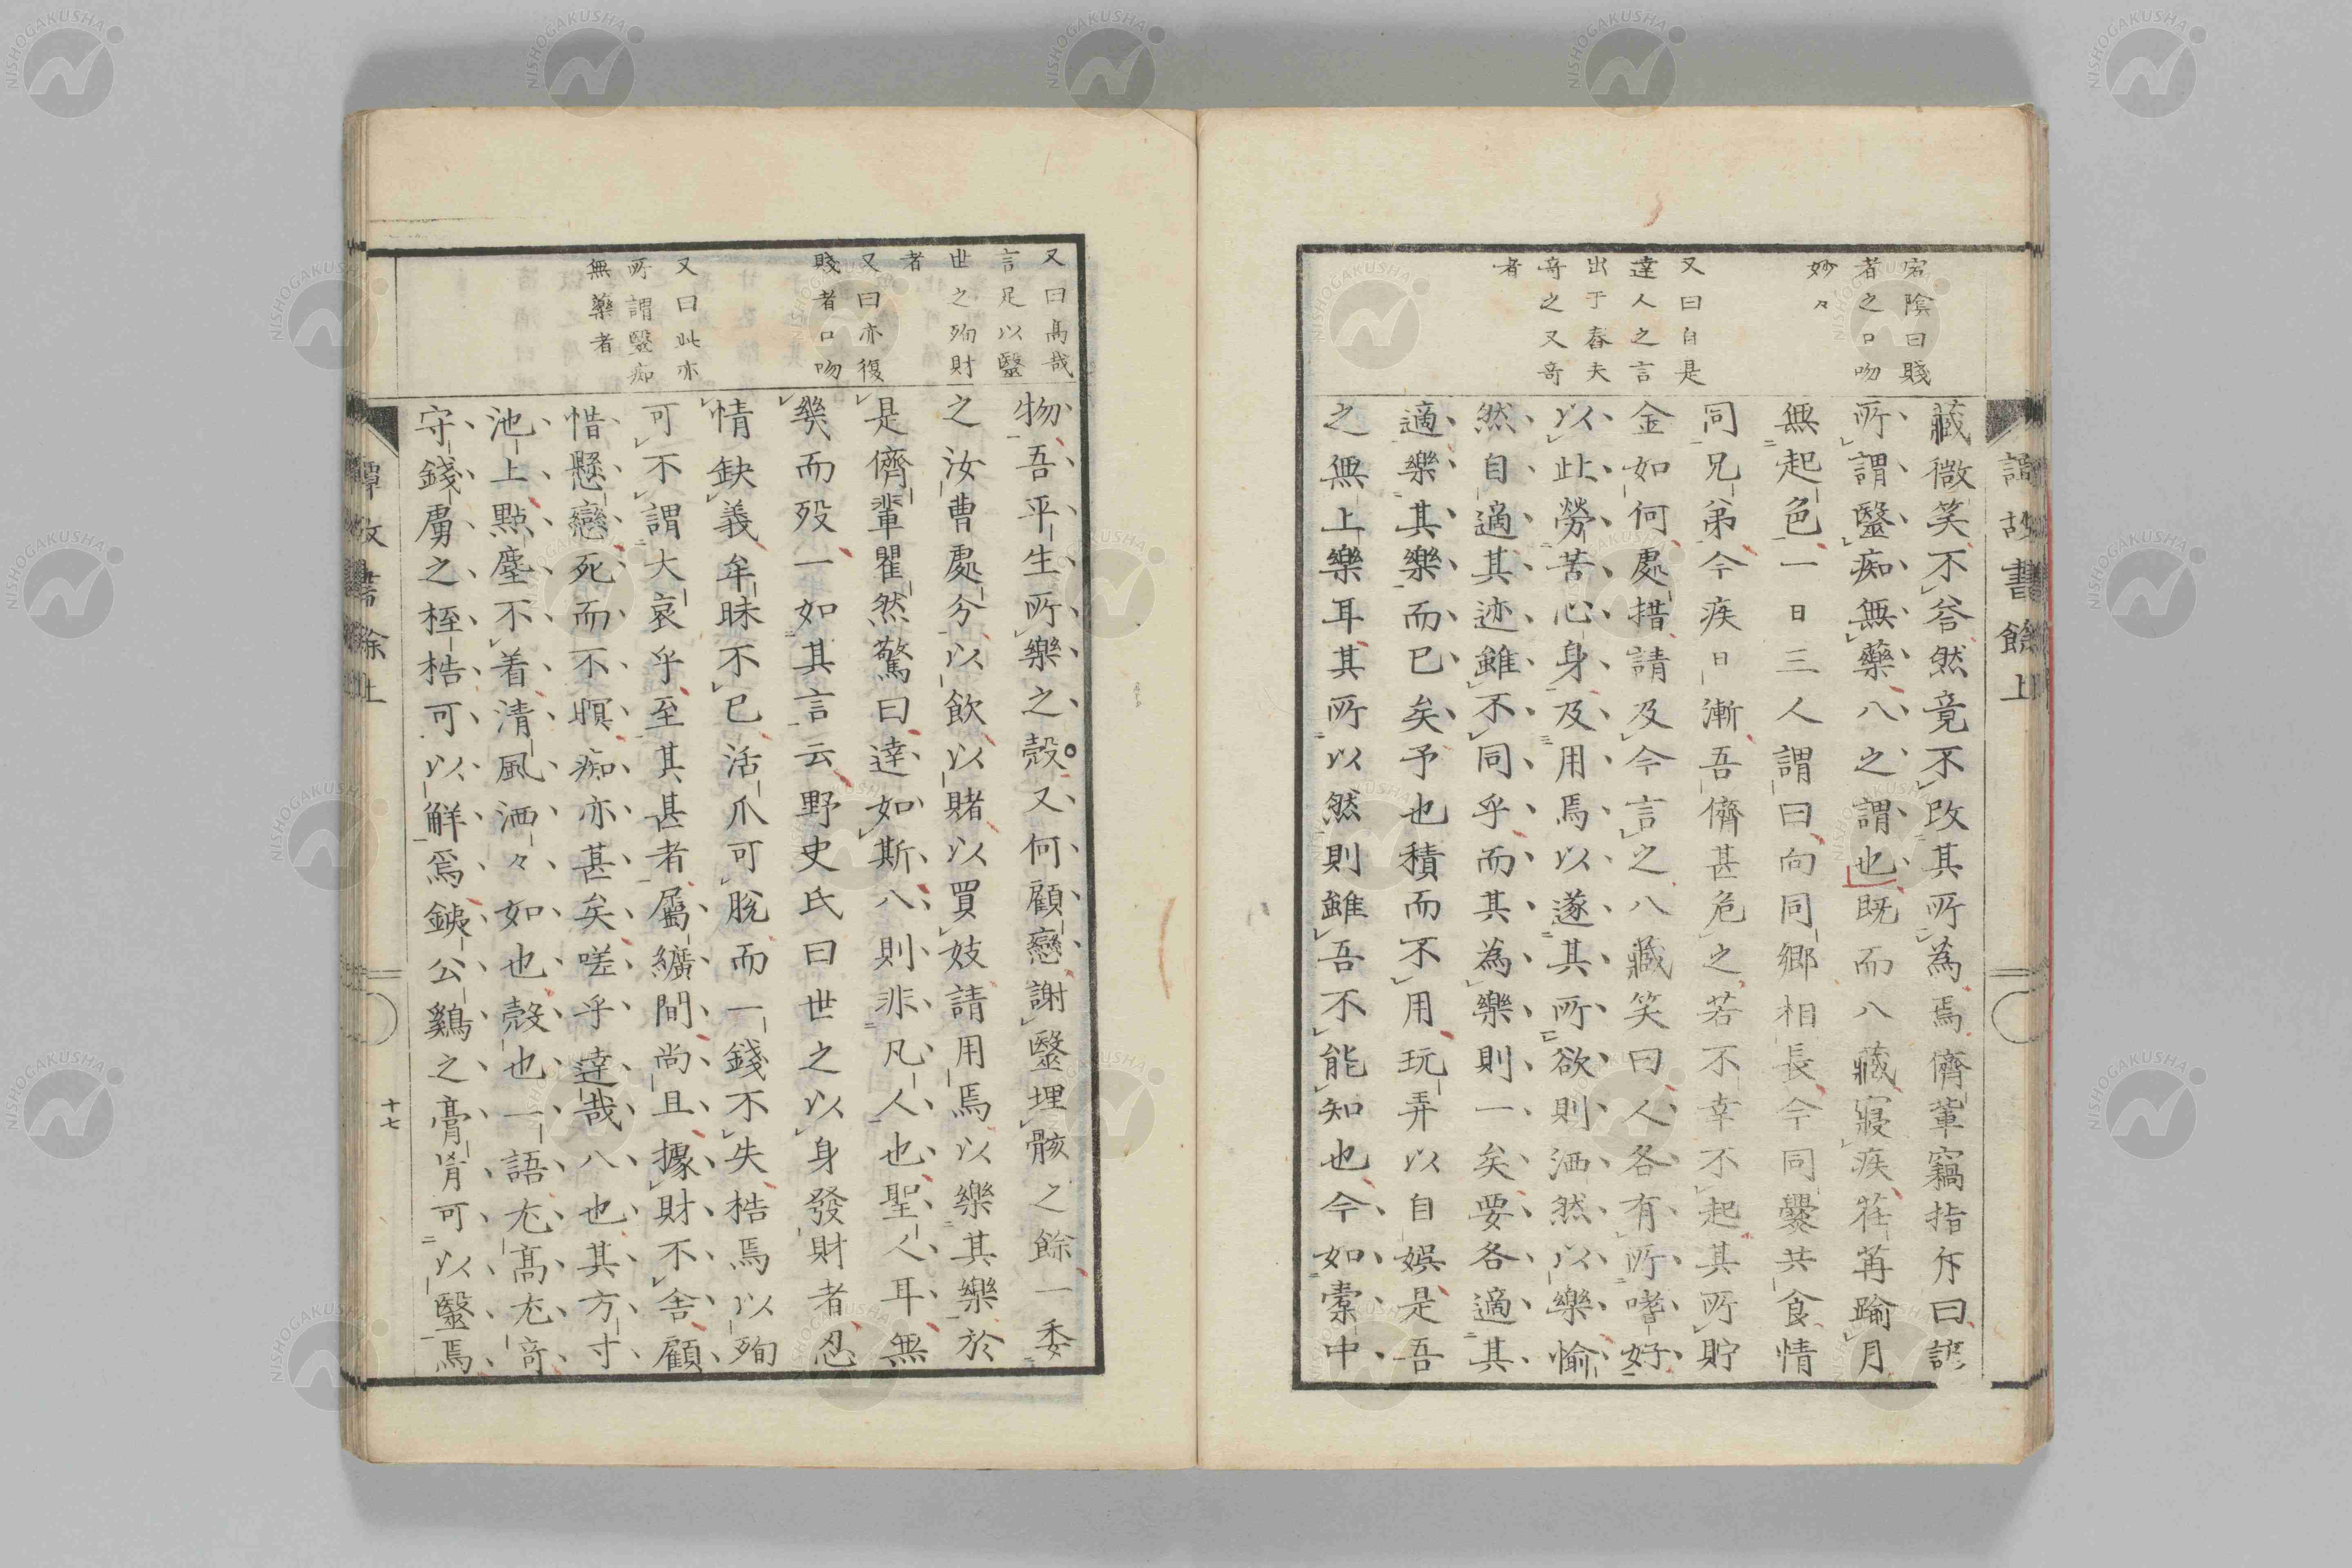 譚故書餘上
宕陰曰賤
者之口吻
妙々
又曰自是
達人之言
出于舂夫
奇之又奇
者
藏微笑不答然竟不改其所為焉儕輩竊指斥曰諺
所謂醫痴無藥八之謂也既而八藏寢疾荏苒踰月
無起色一日三人謂曰向同鄉相長今同爨共食情
同兄弟今疾日漸吾儕甚危之若不幸不起其所貯
金如何處措請及今言之八藏笑曰人各有所嗜好
以此勞苦心身及用焉以遂其所欲則洒然以樂愉
然自適其迹雖不同乎而其為樂則一矣要各適其
適樂其樂而已矣予也積而不用玩弄以自娛是吾
之無上樂耳其所以然則雖吾不能知也今如橐中
又曰高哉
言足以醫
世之殉財
者
又曰亦復
賤者口吻
又曰此亦
所謂醫痴
無藥者
物吾平生所樂之殼又何顧戀謝醫埋骸之餘一委
之汝曹處分以飲以賭以買妓請用焉以樂其樂於
是儕輩瞿然驚曰達如斯八則非凡人也聖人耳無
幾而歿一如其言云野史氏曰世之以身發財者忍
情缺義牟昧不已活爪可脫而一錢不失梏焉以殉
可不謂大哀乎至其甚者屬纊間尚且據財不舍顧
惜懸戀死而不瞑痴亦甚矣嗟乎達哉八也其方寸
池上點塵不着清風洒々如也殼也一語尤高尤奇
守錢虜之桎梏可以解焉銕公鷄之膏肓可以醫焉
譚故書餘上
十七